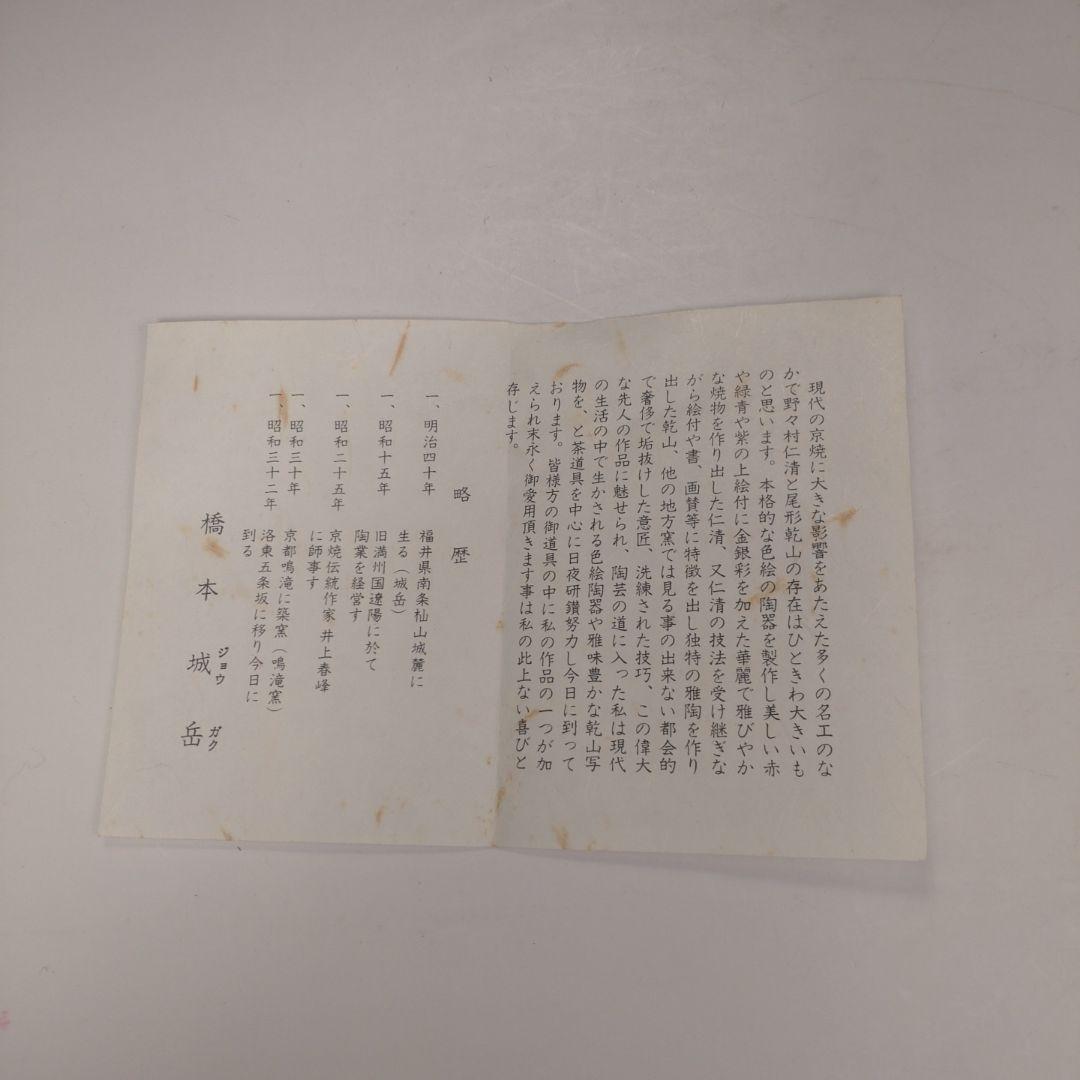 現代の京焼に大きな影響をあたえた多くの名工のな
かで野々村仁清と尾形乾山の存在はひときわ大きいも
のと思います。本格的な色絵の陶器を製作し美しい赤
や緑青や紫の上絵付に金銀彩を加えた華麗で雅びやか
な焼物を作り出した仁清、又仁清の技法を受け継ぎな
がら絵付や書、画賛等に特徴を出し独特の雅陶を作り
出した乾山、他の地方窯では見る事の出来ない都会的
で奢侈で垢抜けした意匠、洗練された技巧、この偉大
な先人の作品に魅せられ、陶芸の道に入った私は現代
の生活の中で生かされる色絵陶器や雅味豊かな乾山写
物を、と茶道具を中心に日夜研鑚努力し今日に到って
おります。皆様方の御道具の中に私の作品の一つが加
えられ末永く御愛用頂きます事は私の此上ない喜びと
存じます。
略歴
一、明治四十年 福井県南条杣山城麓に
生る（城岳）
一、昭和十五年 旧満州国遼陽に於て
陶業を経営す
一、昭和二十五年 京焼伝統作家 井上春峰
に師事す
一、昭和三十年 京都鳴滝に築窯（鳴滝窯）
一、昭和三十二年 洛東五条坂に移り今日に
到る
橋本城岳
ジョウ ガク